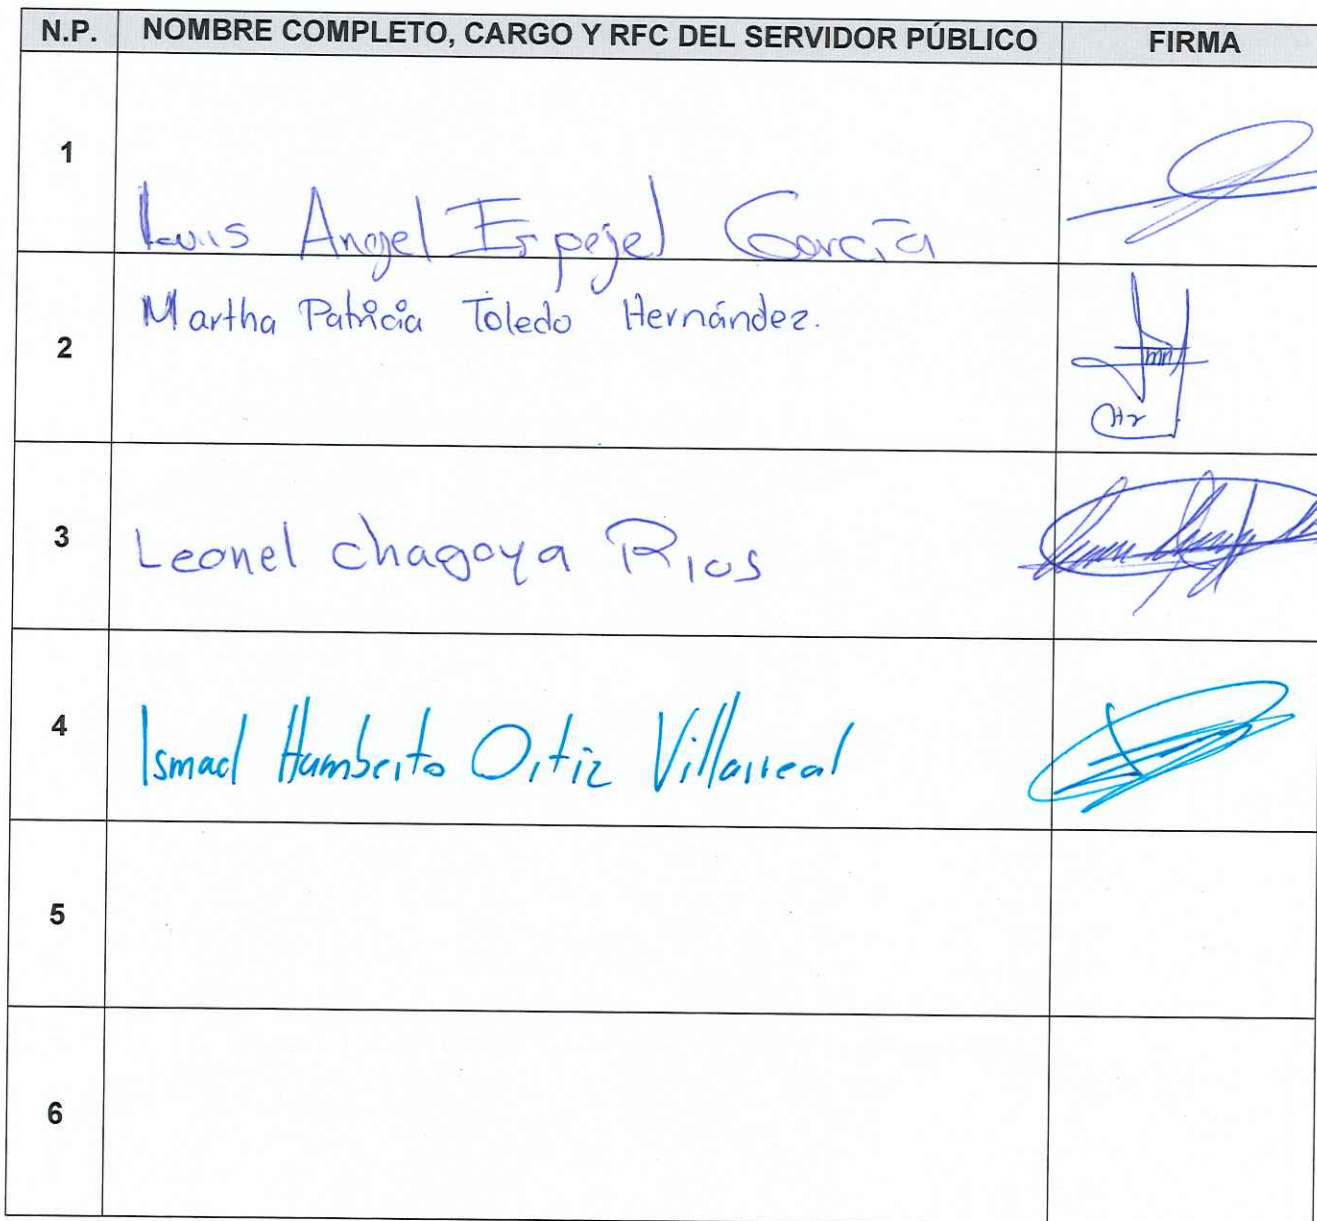 N.P. NOMBRE COMPLETO, CARGO Y RFC DEL SERVIDOR PÚBLICO FIRMA
1 Luis Angel Espejel García
2 Martha Patricia Toledo Hernández.
3 Leonel chagoya Rios
4 Ismael Humberto Ortiz Villarreal
5
6